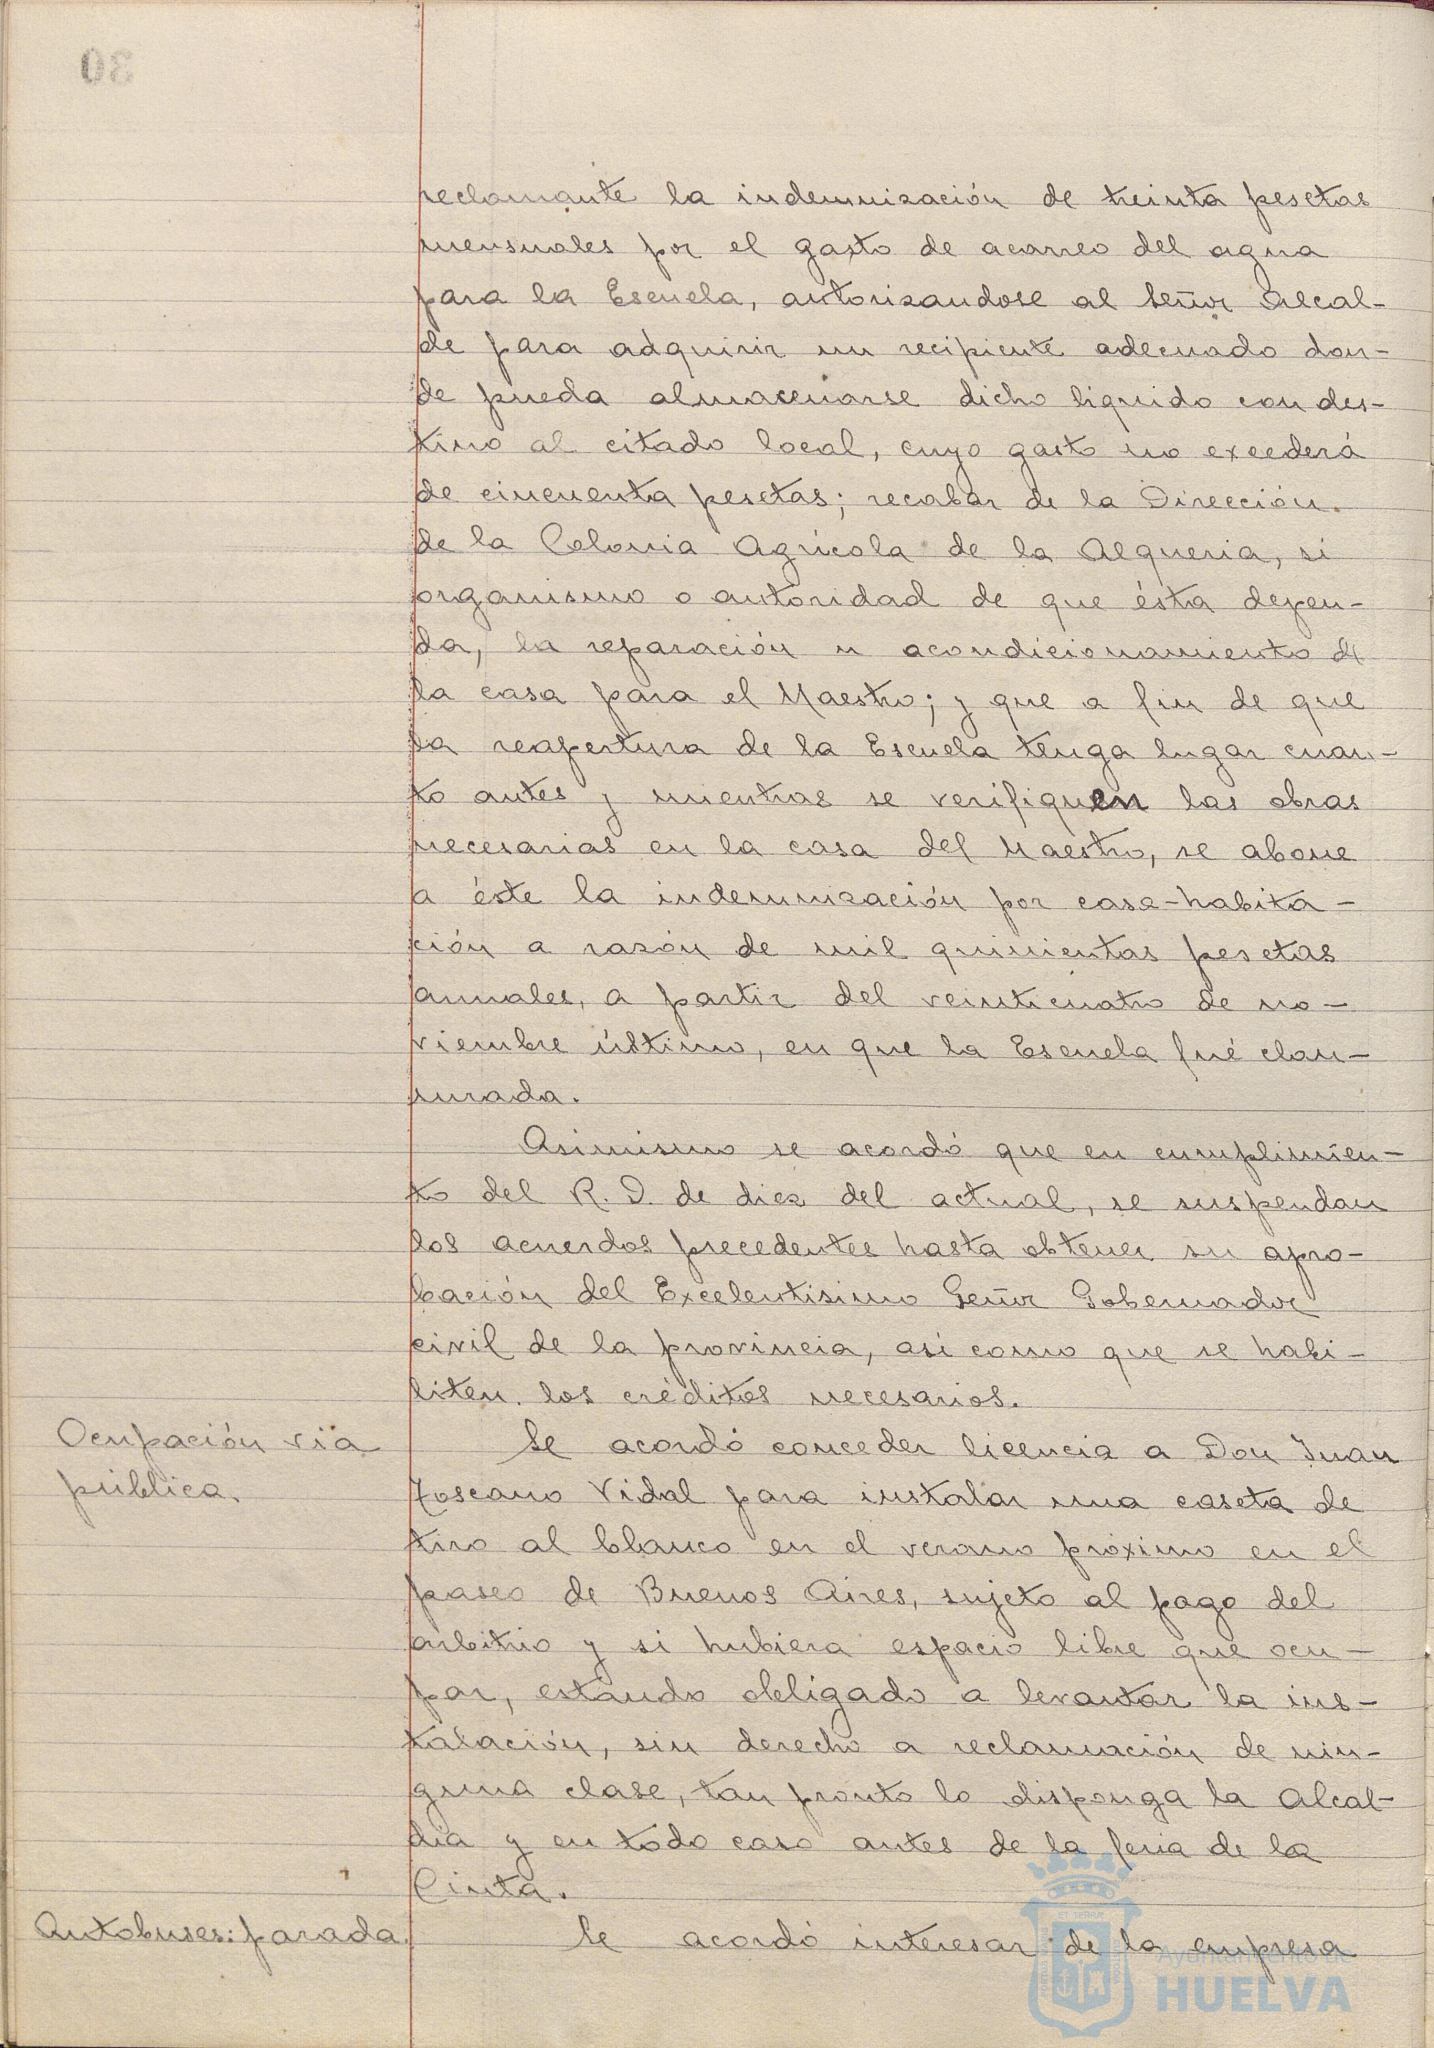 30
reclamante la indemnización de treinta pesetas
mensuales por el gasto de acarreo del agua
para la Escuela, autorizandose al Señor Alcal-
de para adquirir un recipiente adecuado don-
de pueda almacenarse dicho líquido con des-
tino al citado local, cuyo gasto no excederá
de cincuenta pesetas; recabar de la Dirección
de la Colonia Agrícola de la Alqueria, si
organismo o autoridad de que ésta depen-
da, la reparación u acondicionamiento de
la casa para el Maestro; y que a fin de que
la reapertura de la Escuela tenga lugar cuan-
to antes y mientras se verifiquen las obras
necesarias en la casa del Maestro, se abone
a éste la indemnización por casa-habita-
ción a razón de mil quinientas pesetas
anuales, a partir del veinticuatro de no-
viembre último, en que la Escuela fué clau-
surada.
Asimismo se acordó que en cumplimien-
to del R. D. de diez del actual, se suspendan
los acuerdos precedentes hasta obtener su apro-
bación del Excelentísimo Señor Gobernador
civil de la provincia, asi como que se habi-
liten los créditos necesarios.
Ocupación via
pública.
Se acordó conceder licencia a Don Juan
Toscano Vidal para instalar una caseta de
tiro al blanco en el verano próximo en el
paseo de Buenos Aires, sujeto al pago del
arbitrio y si hubiera espacio libre que ocu-
par, estando obligado a levantar la ins-
talación, sin derecho a reclamación de nin-
guna clase, tan pronto lo disponga la Alcal-
dia y en todo caso antes de la feria de la
Cinta.
Autobuses: parada.
Se acordó interesar de la empresa
Ayuntamiento de
HUELVA